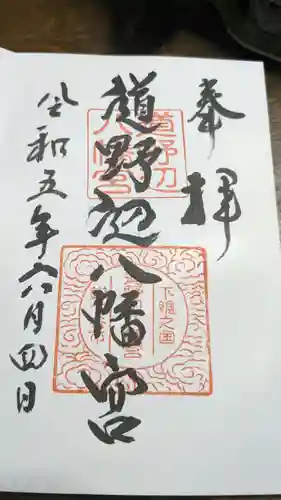 奉拝
道野辺八幡宮
令和五年六月四日
道野辺
八幡宮
下總之国